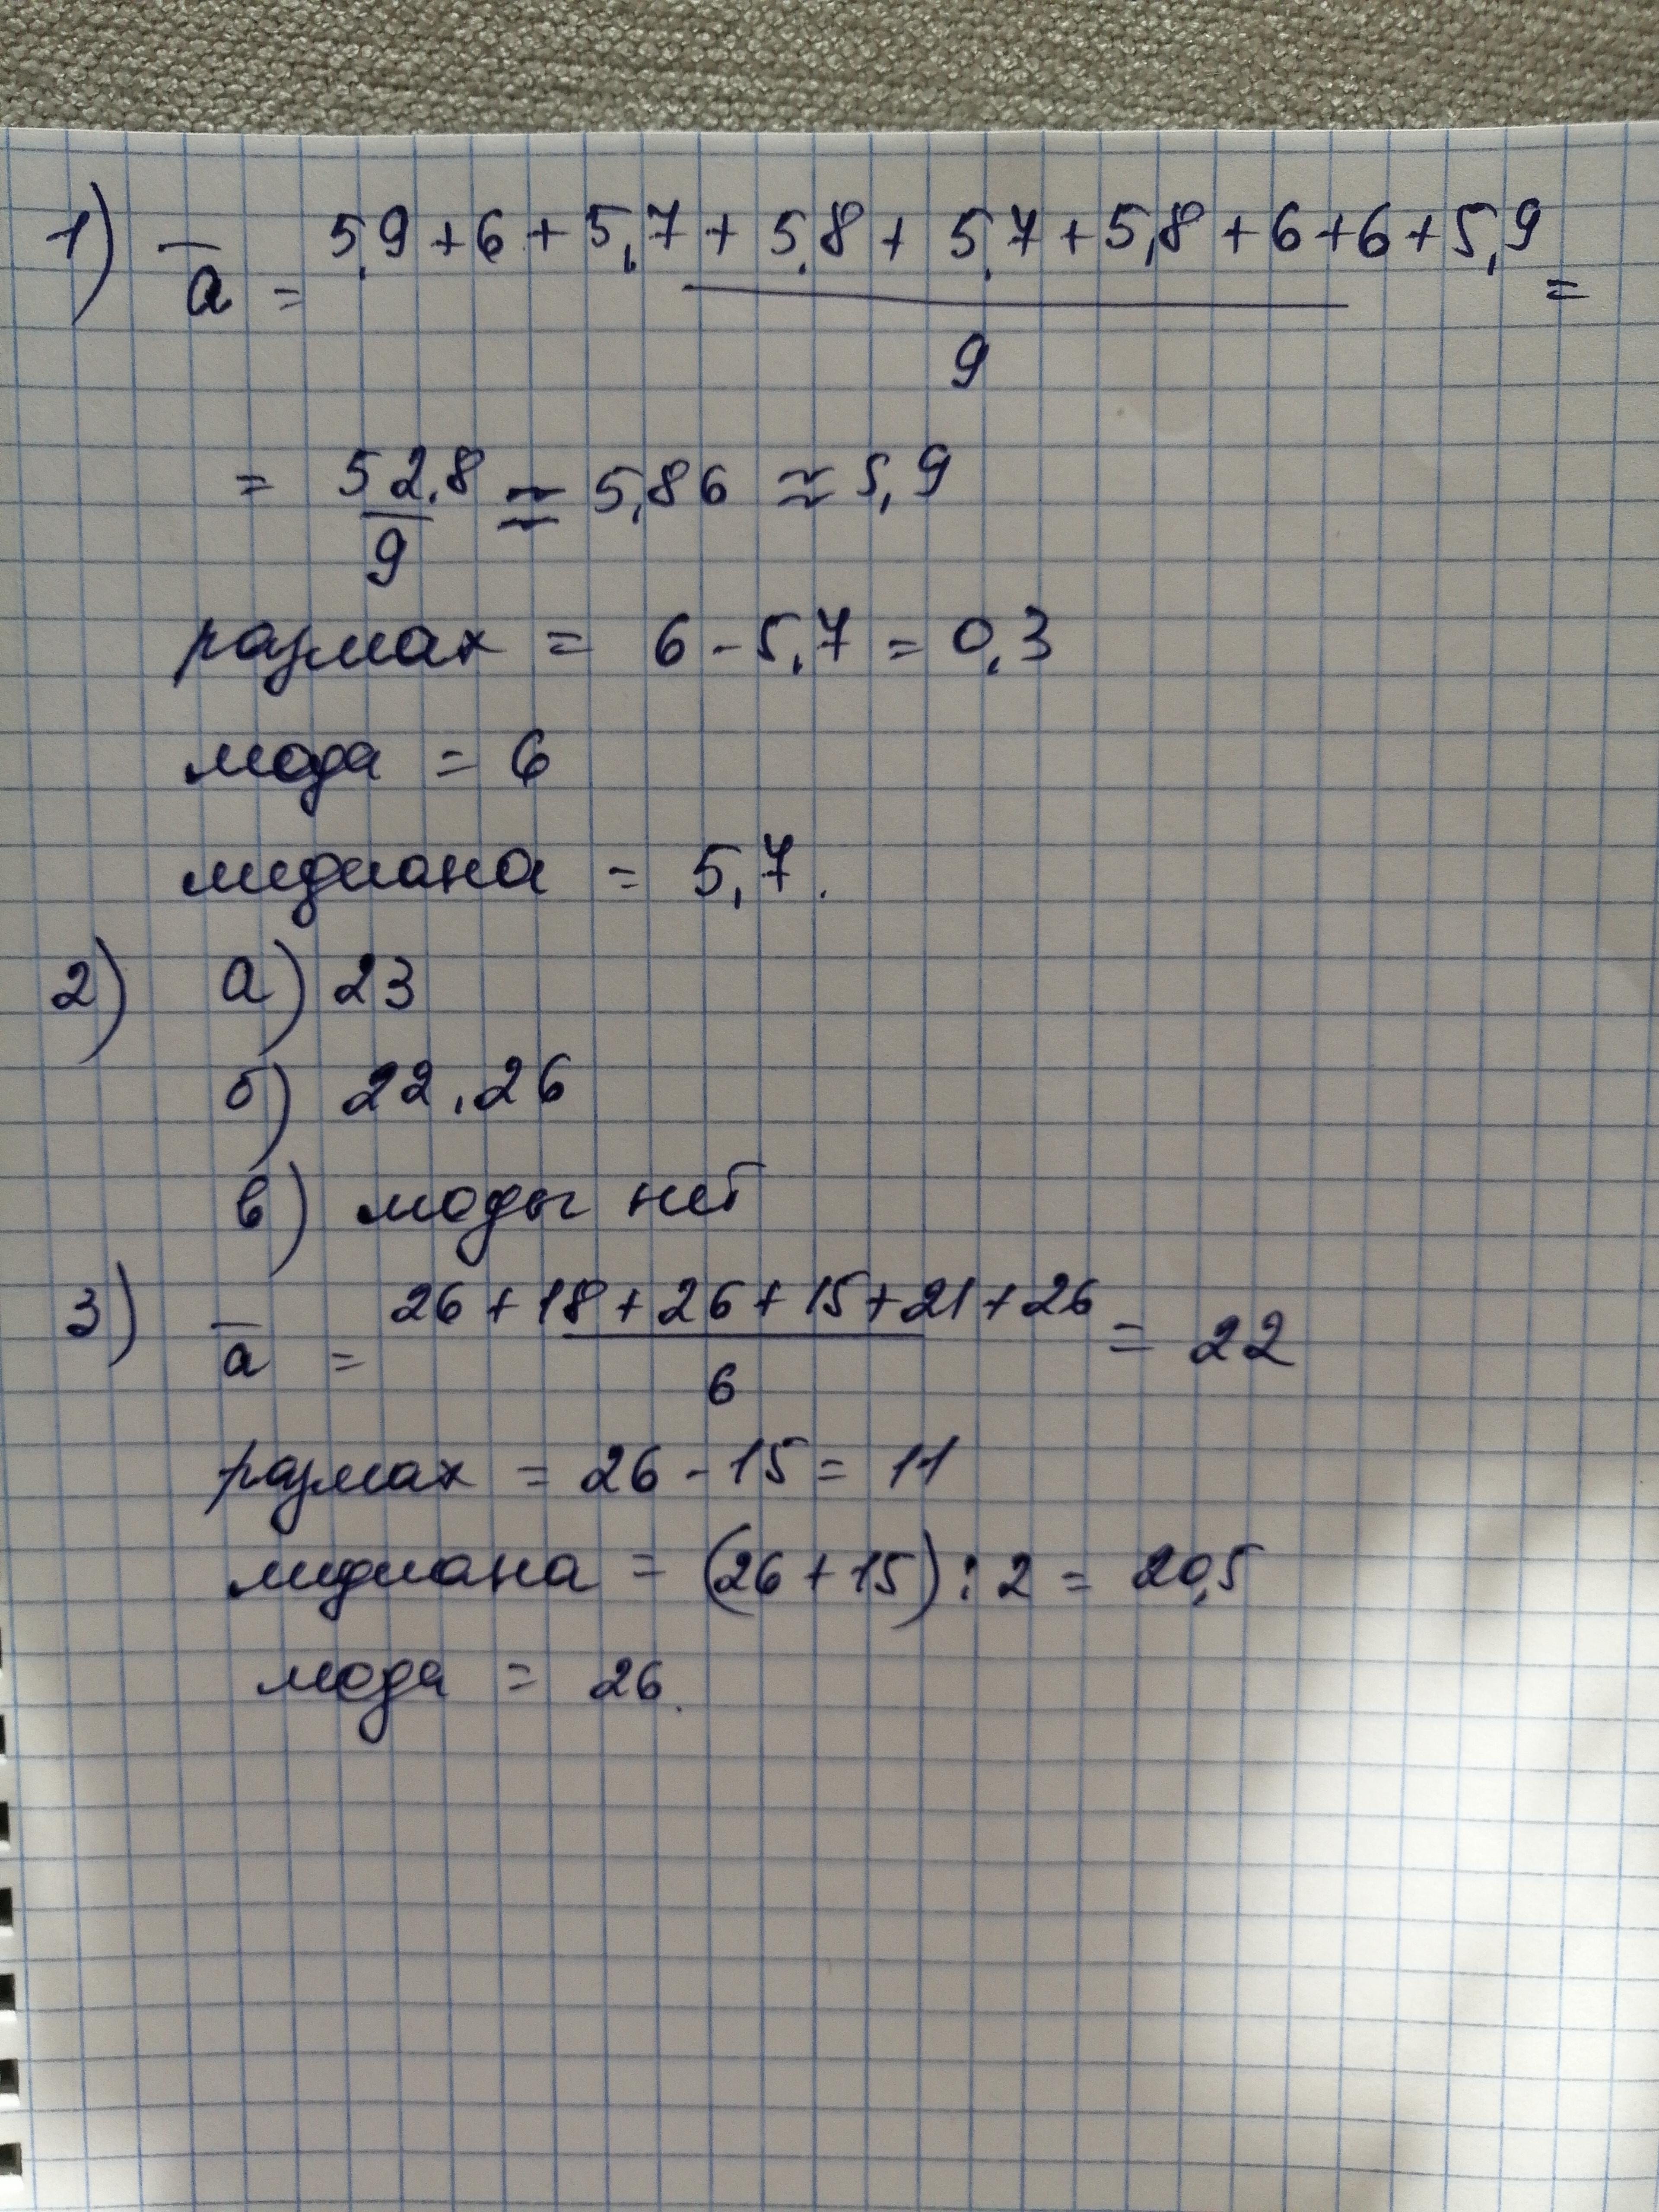 1) a = 5,9 + 6 + 5,7 + 5,8 + 5,7 + 5,8 + 6 + 6 + 5,9 =
9
= 52,8 ≈ 5,86 ≈ 5,9
9
размах = 6 - 5,7 = 0,3
мода = 6
мидиана = 5,7.
2) а) 23
б) 22,26
в) моды нет
3) a = 26 + 18 + 26 + 15 + 21 + 26 = 22
6
размах = 26 - 15 = 11
мидиана = (26 + 15) : 2 = 20,5
мода = 26.